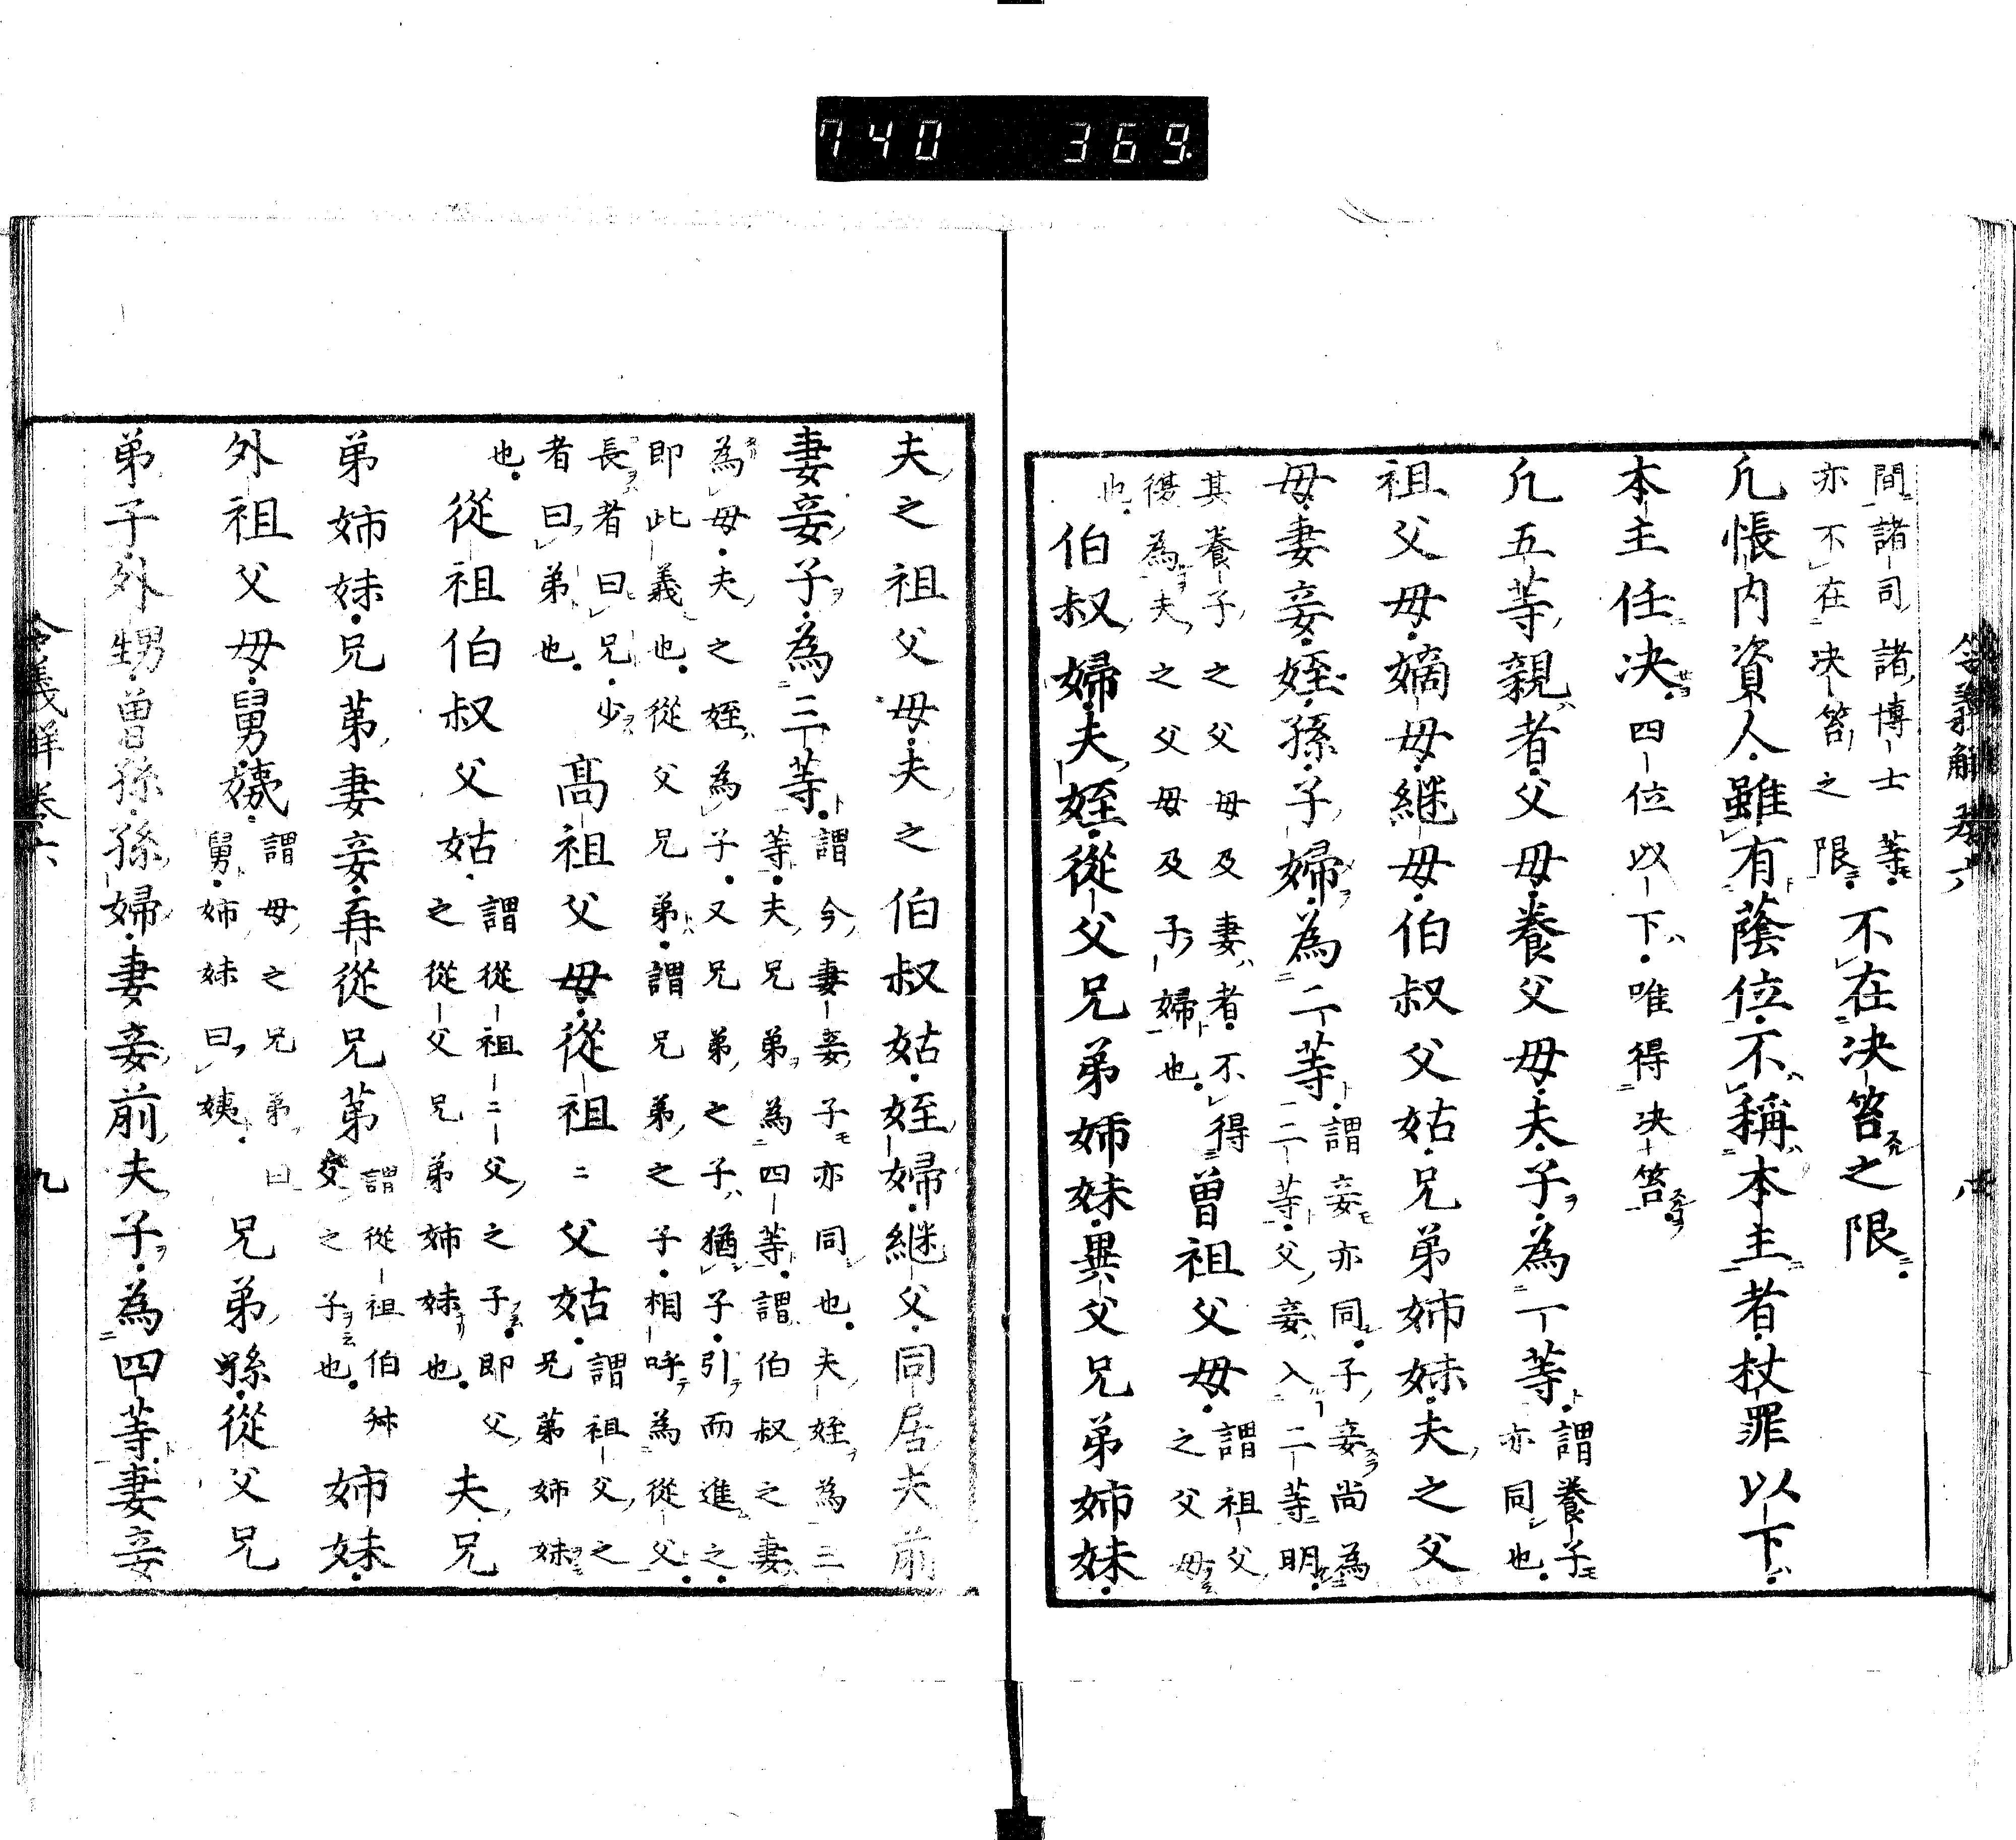 740 369
間諸司諸博士等
亦不在決笞之限
不在决笞之限
凢帳内資人雖有蔭位不稱本主者杖罪以下
本主任决四位以下唯得决笞
凢五等親者父母養父母夫子為一等
謂養子
亦同也
祖父母嫡母継母伯叔父姑兄弟姉妹夫之父
母妻妾姪孫子婦為二等
謂妾亦同子妾尚為
二等父妾入二等明
其養子之父母及妻者不得
復為夫之父母及子婦也
曽祖父母
謂祖父之
之父母也
伯叔婦夫姪從父兄弟姉妹異父兄弟姉妹
夫之祖父母夫之伯叔姑姪婦継父同居夫前
妻妾子為三等
謂今妻妾子亦同也夫姪為三
等夫兄弟為四等謂伯叔之妻
為母夫之姪為子又兄弟之子猶子引而進之
即此義也從父兄弟謂兄弟之子相呼為從父
長者曰兄少
者曰弟也
高祖父母從祖二父姑
謂祖父之
兄弟姉妹
也
從祖伯叔父姑
謂從祖二父之子即父
之從父兄弟姉妹也
夫兄
弟姉妹兄弟妻妾再從兄弟
謂從祖伯叔
父之子也
姉妹
外祖父母舅姨
謂母之兄弟曰
舅姉妹曰姨
兄弟孫從父兄
弟子外甥曽孫孫婦妻妾前夫子為四等妻妾
令義解巻六 九